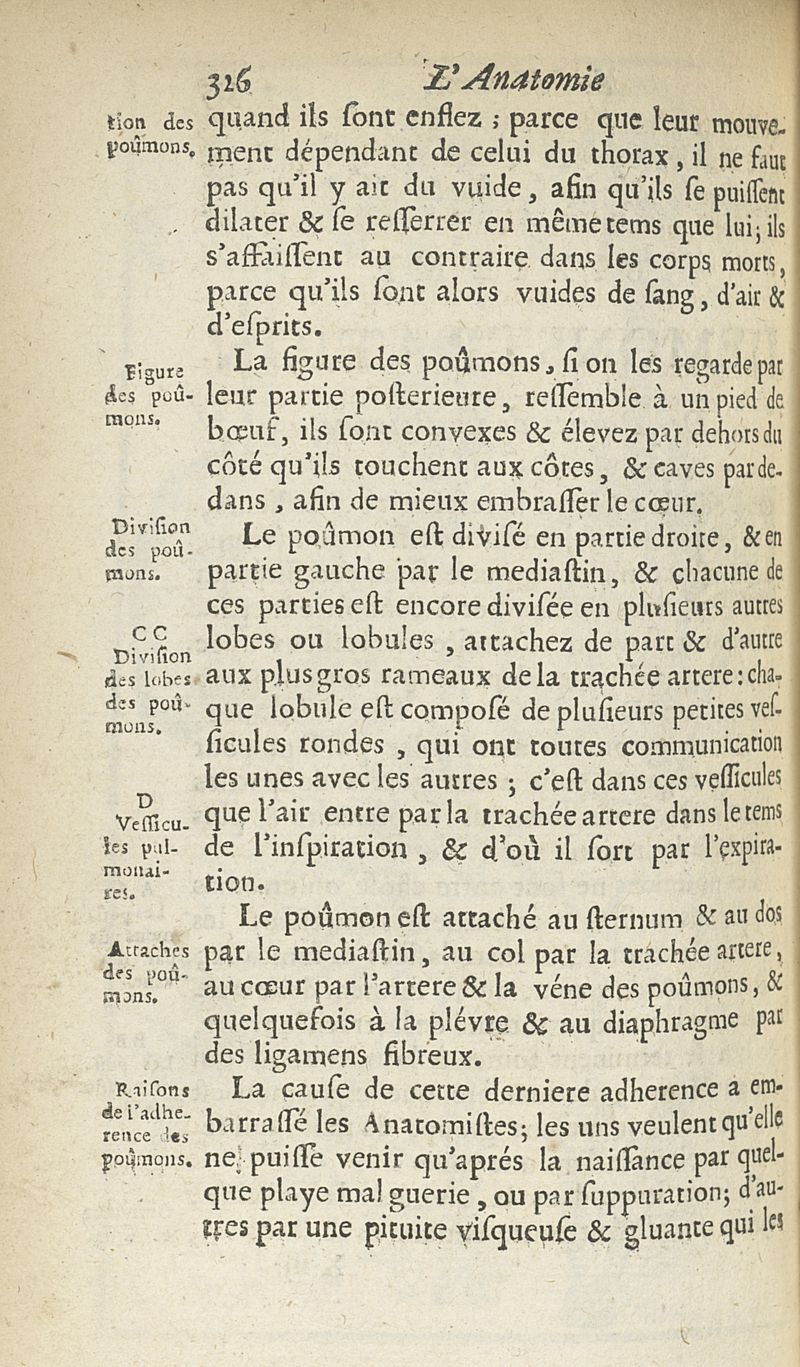 326 L'Anatomie
tion des
poûmons.
quand ils ſont enflez ; parce que leur mouve-
ment dépendant de celui du thorax, il ne faut
pas qu'il y ait du vuide, afin qu'ils ſe puiſſent
dilater & ſe reſſerrer en même tems que lui; ils
s'affaiſſent au contraire dans les corps morts,
parce qu'ils ſont alors vuides de ſang, d'air &
d'eſprits.
Figure
des poû-
mons.
La figure des poûmons, ſi on les regarde par
leur partie poſterieure, reſſemble à un pied de
bœuf, ils ſont convexes & élevez par dehors du
côté qu'ils touchent aux côtes, & caves par de-
dans, afin de mieux embraſſer le cœur.
Diviſion
des poû-
mons.
Le poûmon eſt diviſé en partie droite, & en
partie gauche par le mediaſtin, & chacune de
ces parties eſt encore diviſée en pluſieurs autres
C C
Diviſion
des lobes
des poû-
mons.
lobes ou lobules, attachez de part & d'autre
aux plus gros rameaux de la trachée artere: cha-
que lobule eſt compoſé de pluſieurs petites veſ-
ſicules rondes, qui ont toutes communication
les unes avec les autres ; c'eſt dans ces veſſicules
D
Veſſicu-
les pul-
monai-
res.
que l'air entre par la trachée artere dans le tems
de l'inſpiration, & d'où il ſort par l'expira-
tion.
Le poûmon eſt attaché au ſternum & au dos
Attaches
des poû-
mons.
par le mediaſtin, au col par la trachée artere,
au cœur par l'artere & la véne des poûmons, &
quelquefois à la plévre & au diaphragme par
des ligamens fibreux.
Raiſons
de l'adhe-
rence des
poûmons.
La cauſe de cette derniere adherence a em-
barraſſé les Anatomiſtes; les uns veulent qu'elle
ne puiſſe venir qu'aprés la naiſſance par quel-
que playe mal guerie, ou par ſuppuration; d'au-
tres par une pituite viſqueuſe & gluante qui les